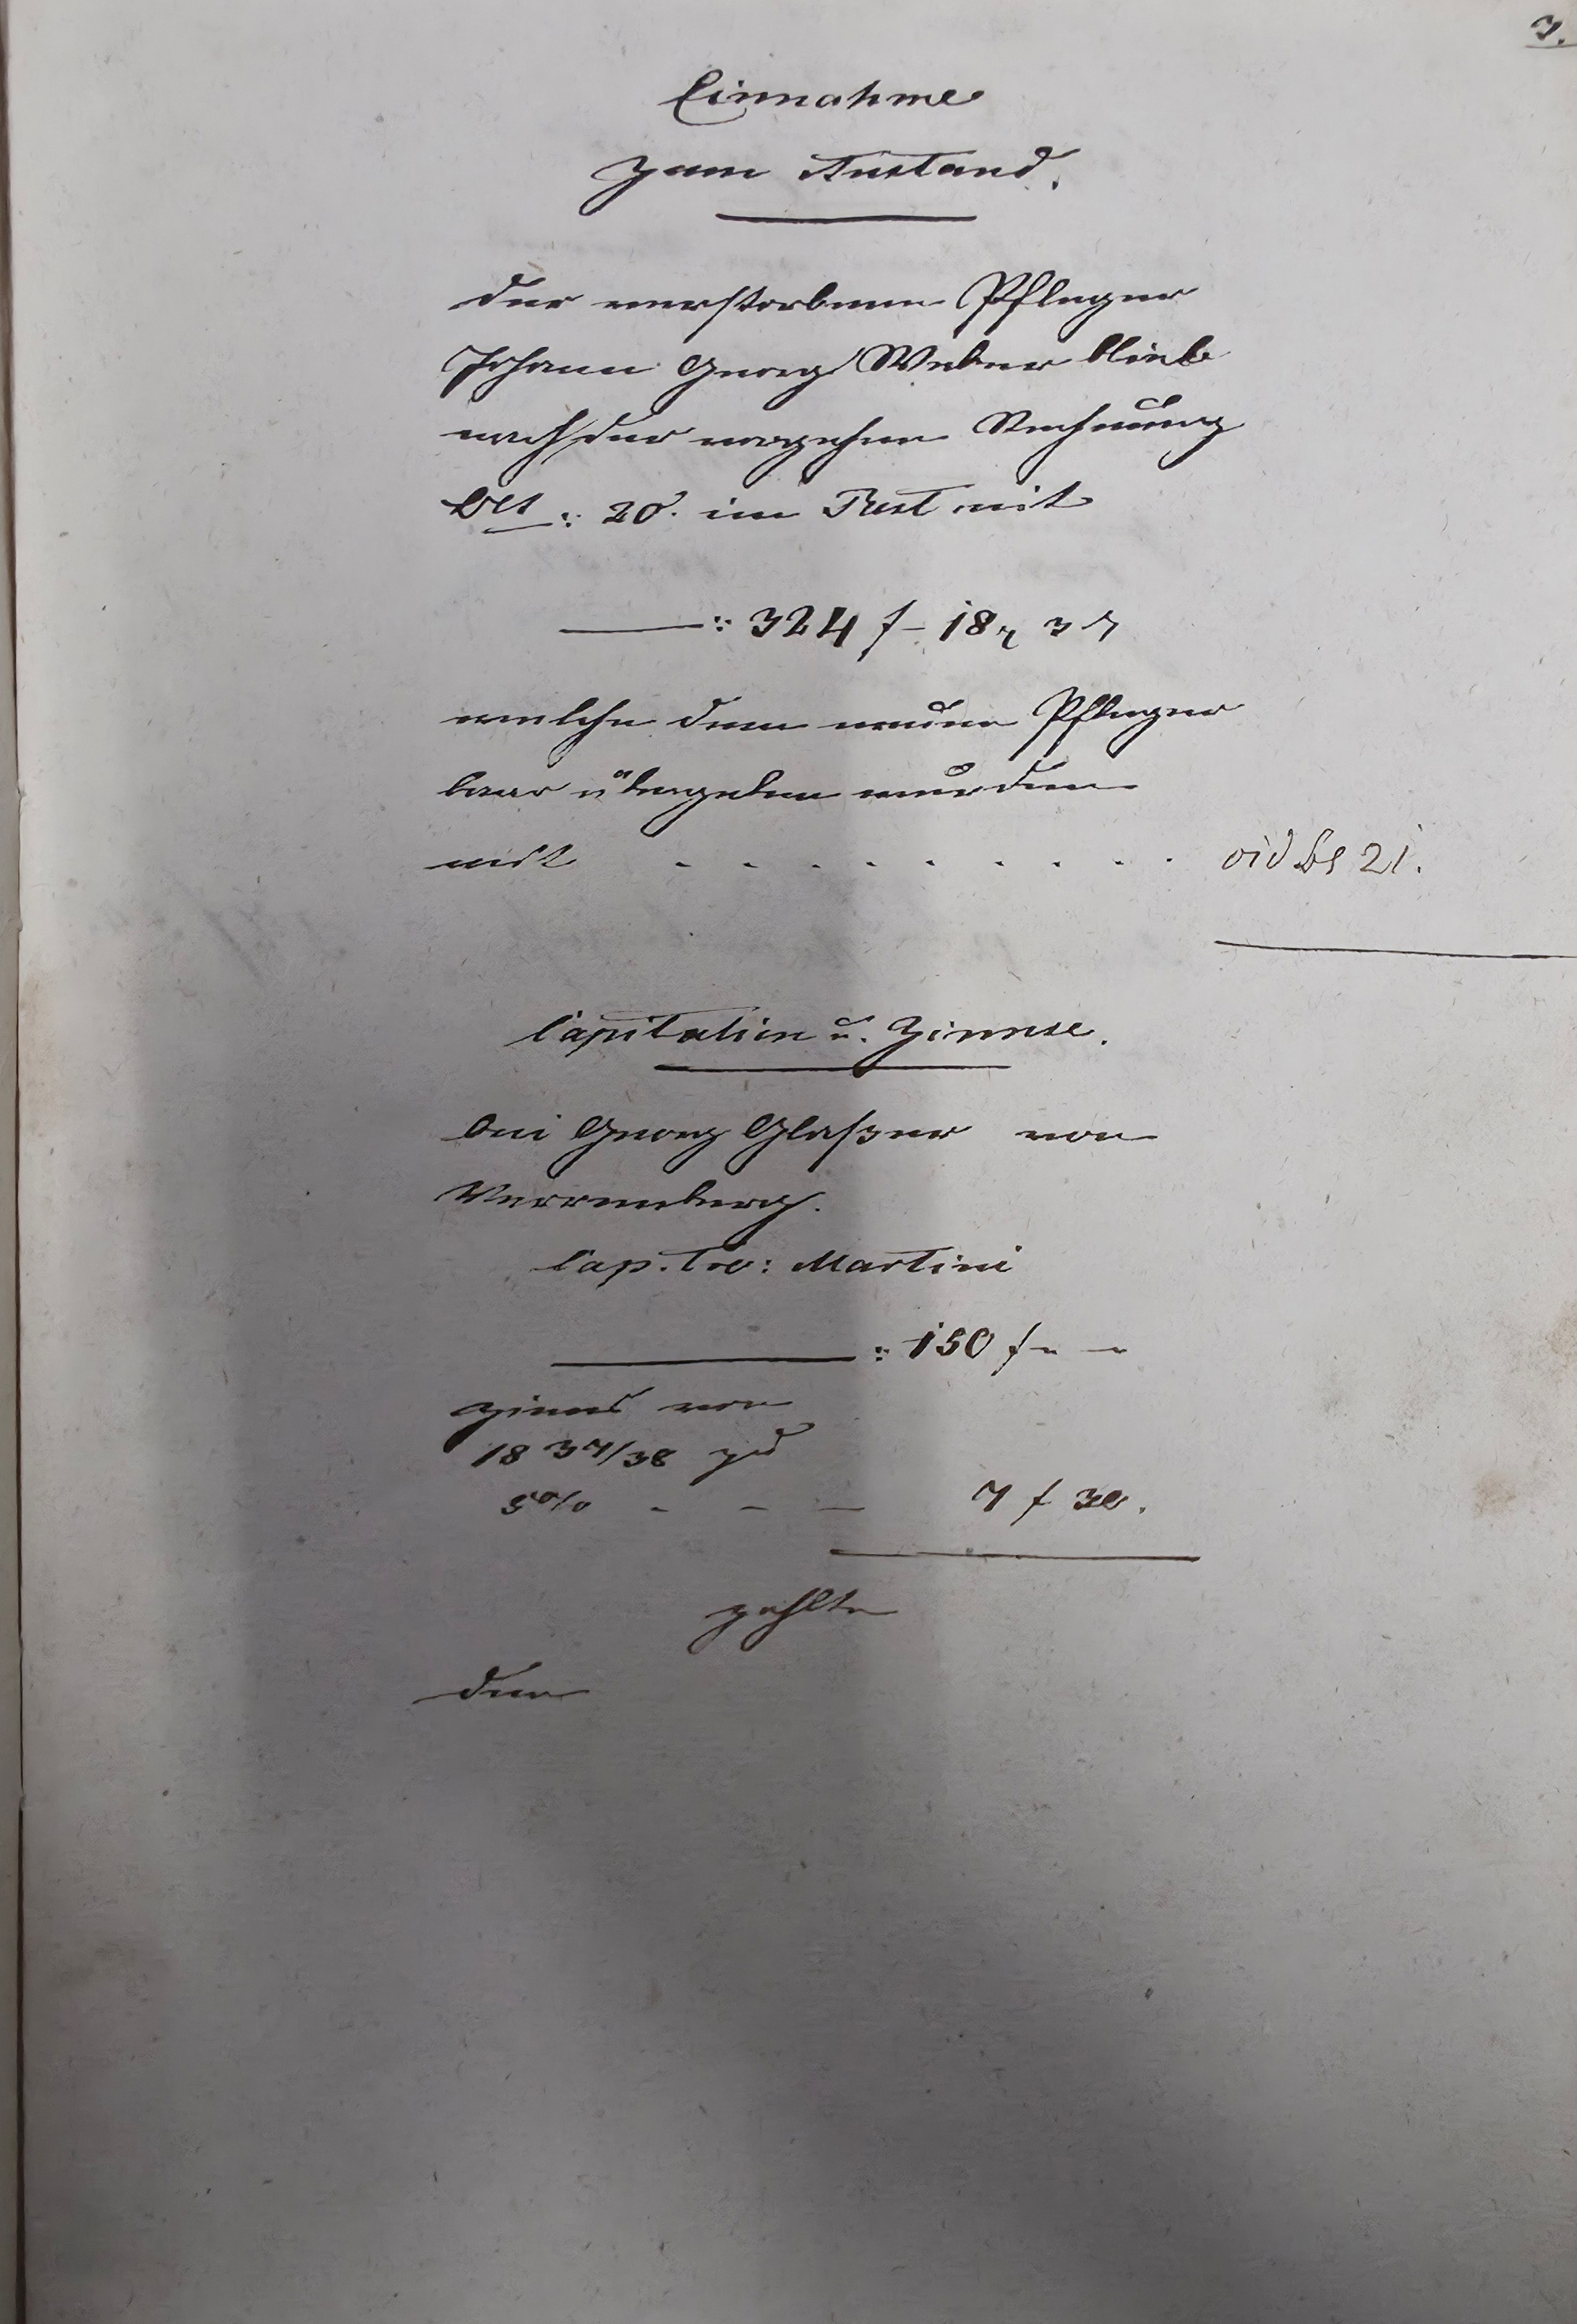 3.
Einnahme
zum Ausstand.
der verstorbene Pfleger
Johann Georg Weber blieb
nach der vorgehen Rechnung
Bl: 20. im Rest mit
—: 324 f – 18 x 3
welche dem neuen Pfleger
baar übergeben wurden
mit . . . . . . . . . vid Bl 21.
Capitalien u. Zinnse.
bei Georg Glaßer von
Verrenberg.
Cap. : Martini
—: 150 f " —
Zinns von
1837/38 zu
5% - - — 7 f 30.
zahlte
der